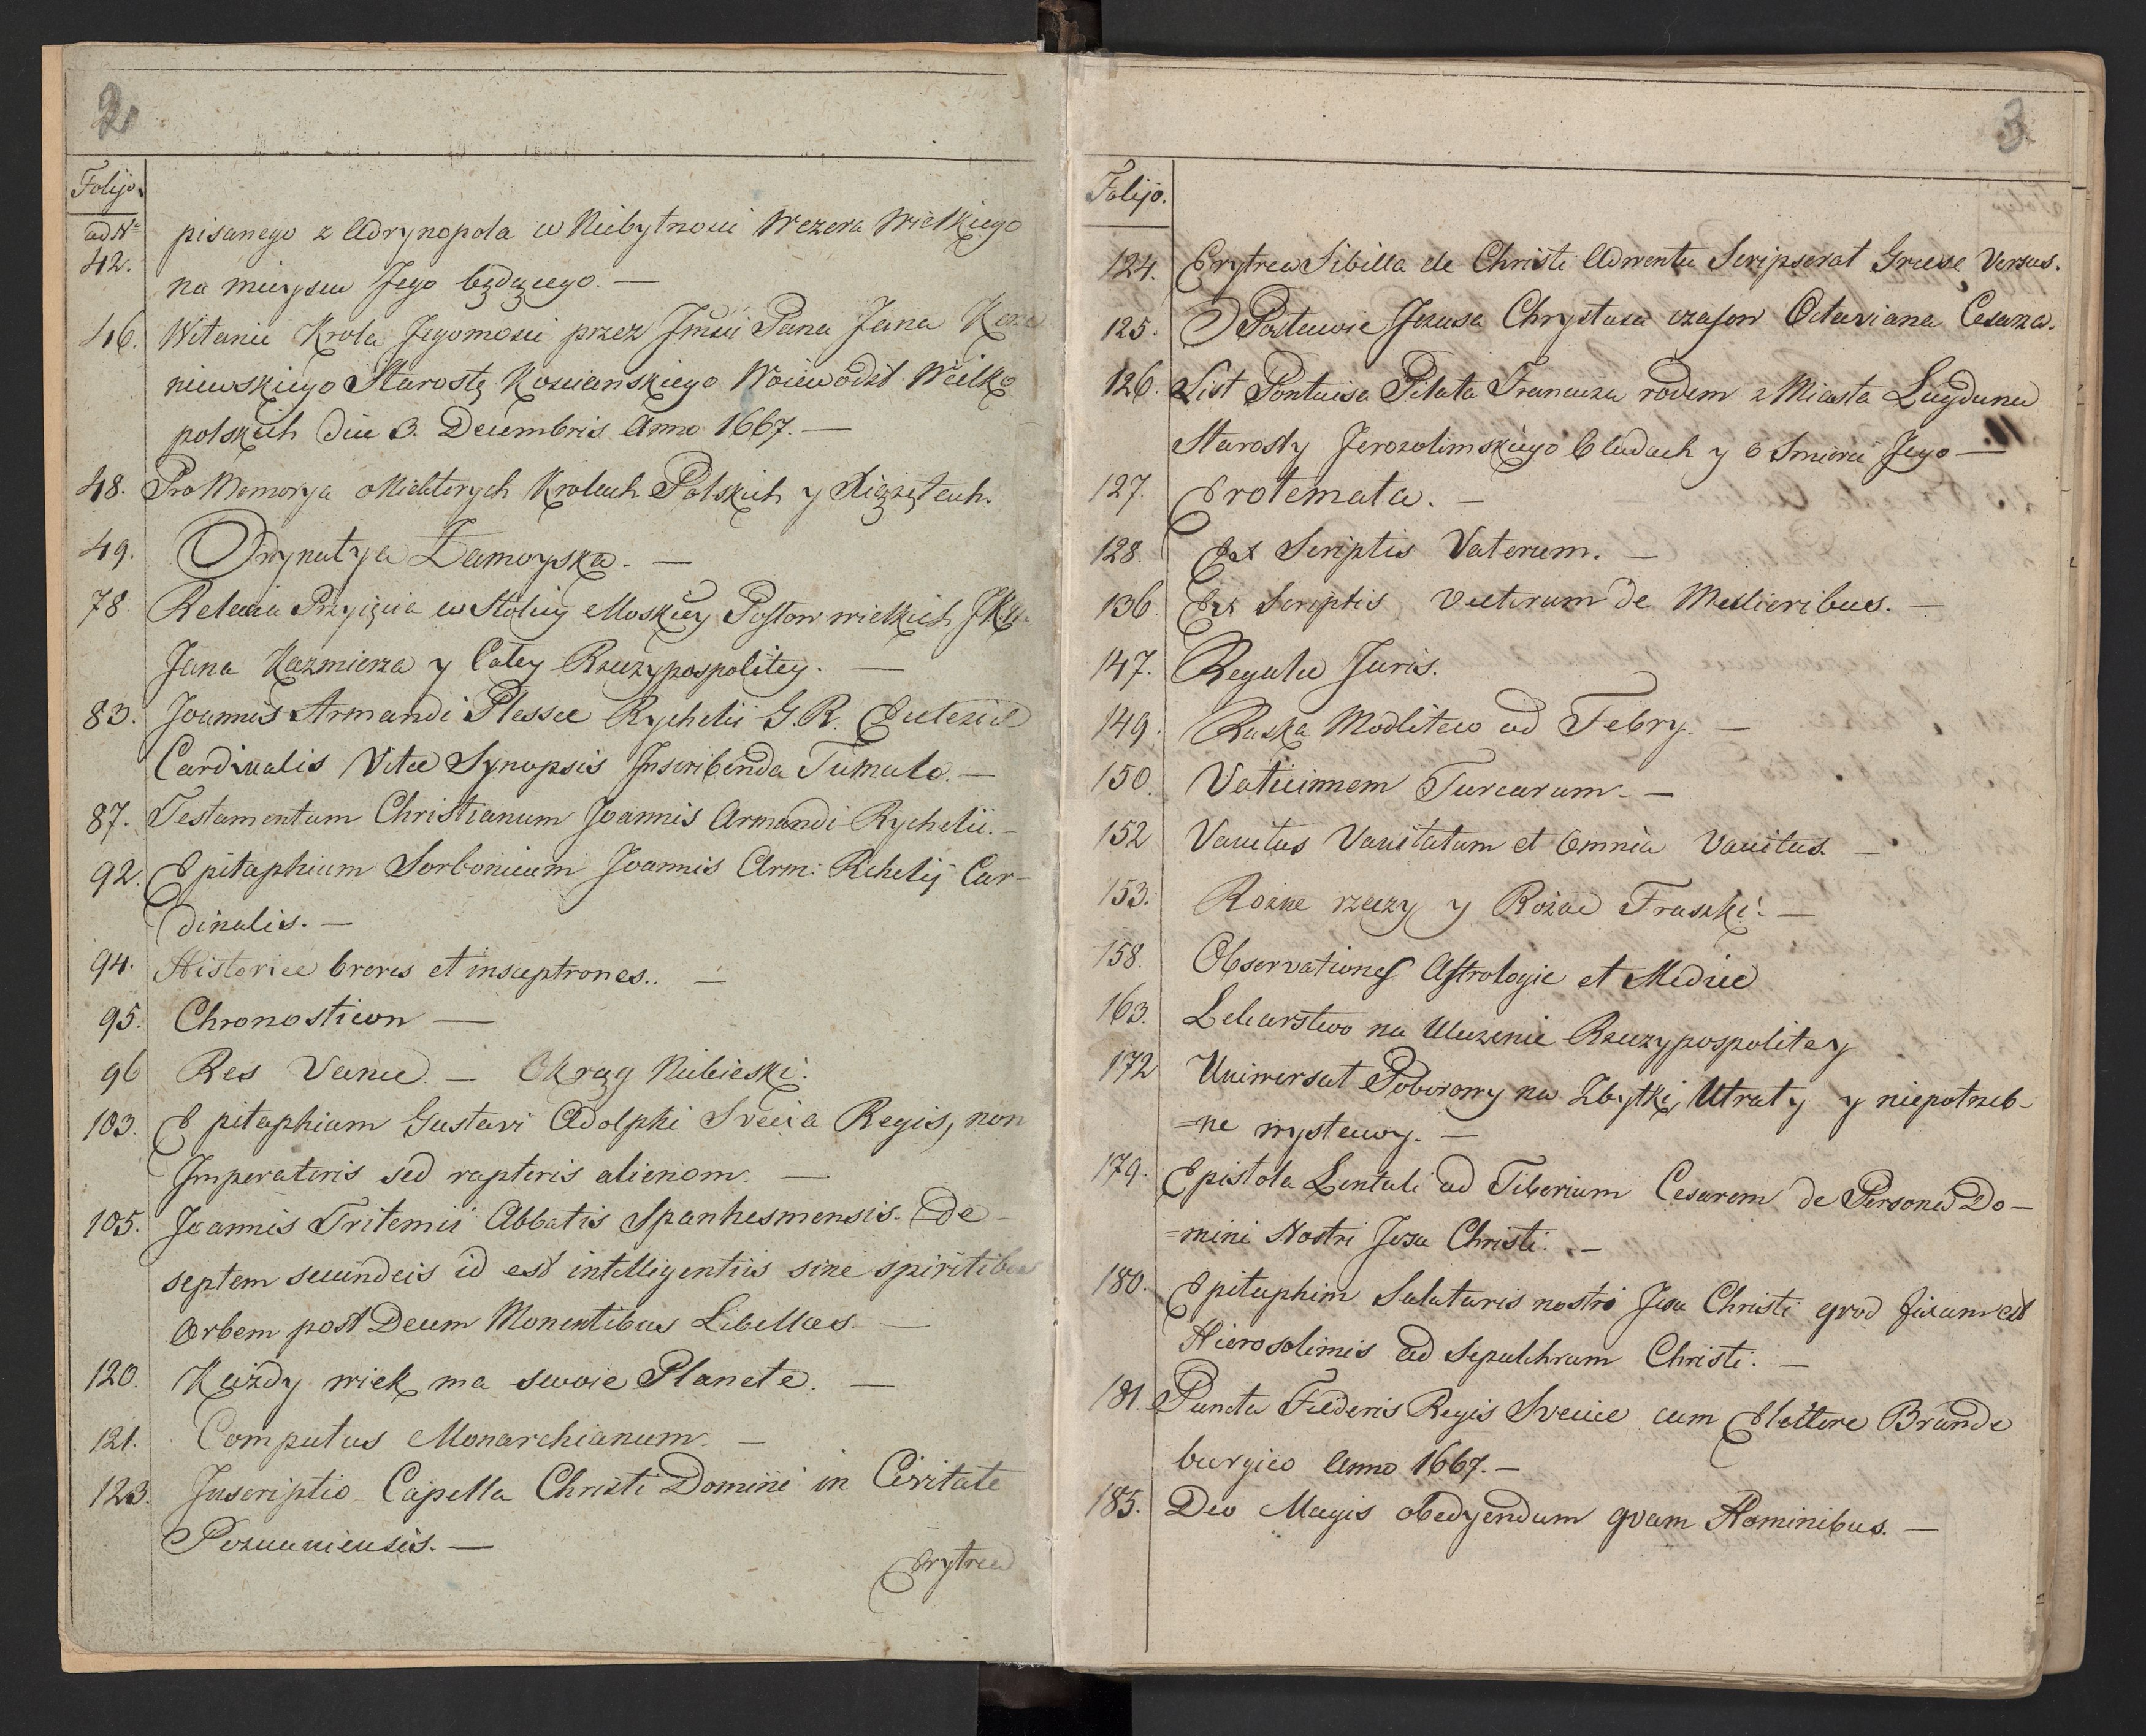 2
Folijo.
ad No
42.
pisanego z Adrynopola w Niebytnosci Wezera Wielkiego
na mieyscu Jego będącego. —
46. Witanie Krola Jegomosci przez Jmsci Pana Jana
niewskiego Starostę Koscianskiego Woiewodzt. Wielko
polskich Die 3. Decembris Anno 1667. —
48. Pro Memorya o Niektorych Krolach Polskich y Xiążętach.
49. Ordynatya Zamoyska. —
78. Relacia Przyięcia w Stolicy Moskiey Posłow wielkich JKM
Jana Kazmierza y Całey Rzeczypospolitey. —
83. Joannis Armandi Plessee Rychelii G. R.
Cardinalis Vitae Synopsis Inscribenda Tumulo. —
87. Testamentum Christianum Joannis Armandi Rychelii. —
92. Epitaphium Sorbonicum Joannis Arm: Rchelij Car-
dinalis. —
94. Historiae breves et insceptrones.. —
95. Chronosticon —
96 Res Varia. — Okrąg Niebieski.
103. Epitaphium Gustavi Adolphi Svecia Regis, non
Imperatoris sed raptoris alienom. —
105. Joannis Tritemii Abbatis Spanhesmensis. De —
septem secundeis id est intelligentiis sine spiritibus
Orbem post Deum Monentibus Libellus. —
120. Każdy wiek ma swoie Planete. —
121. Computus Monarchianum. —
123. Inscriptio Capella Christi Domini in Civitate
Poznaniensis. —
Erytrea
3
Folijo.
124. Erytrea Sibilla de Christi Adventu Scripserat Graece Versus.
125. O Postawie Jezusa Chrystusa czasow Octaviana Cesarza.
126. List Pontuisa Pilata Francuza rodem z Miasta Lugdunu
Starosty Jerozolimskiego O ludach y o Smierci Jego —
127. Erotemata. —
128. Ex Scriptis Vaterum. —
136. Ex Scriptis Veeterum de Mulieribus. —
147. Regulae Juris.
149. Ruska Modlitew od Febry. —
150. Vaticinnem Turcarum. —
152 Vanitas Vanitatum et Omnia Vanitas. —
153. Rozne rzeczy y Rożne Fraszki. —
158. Observationes Astrologie et Medice
163. Lekarstwo na Uluzenie Rzeczypospolitey
172 Uniwersał Poborowy na Zbytki, Utraty y niepotrzeb-
=ne wystawy. —
179. Epistola Lentuli ad Tiberium Cesarem de Persona Do—
=mini Nostri Jesu Christi. —
180. Epitaphim Salutaris nostri Jesu Christi qvod fixum est
Hierosolimis ad Sepulchrum Christi. —
181. Puncta Faederis Regis Sveciae cum Elettore Brande
burgico Anno 1667. —
185. Deo Magis obedyendum qvam Hominibus. —